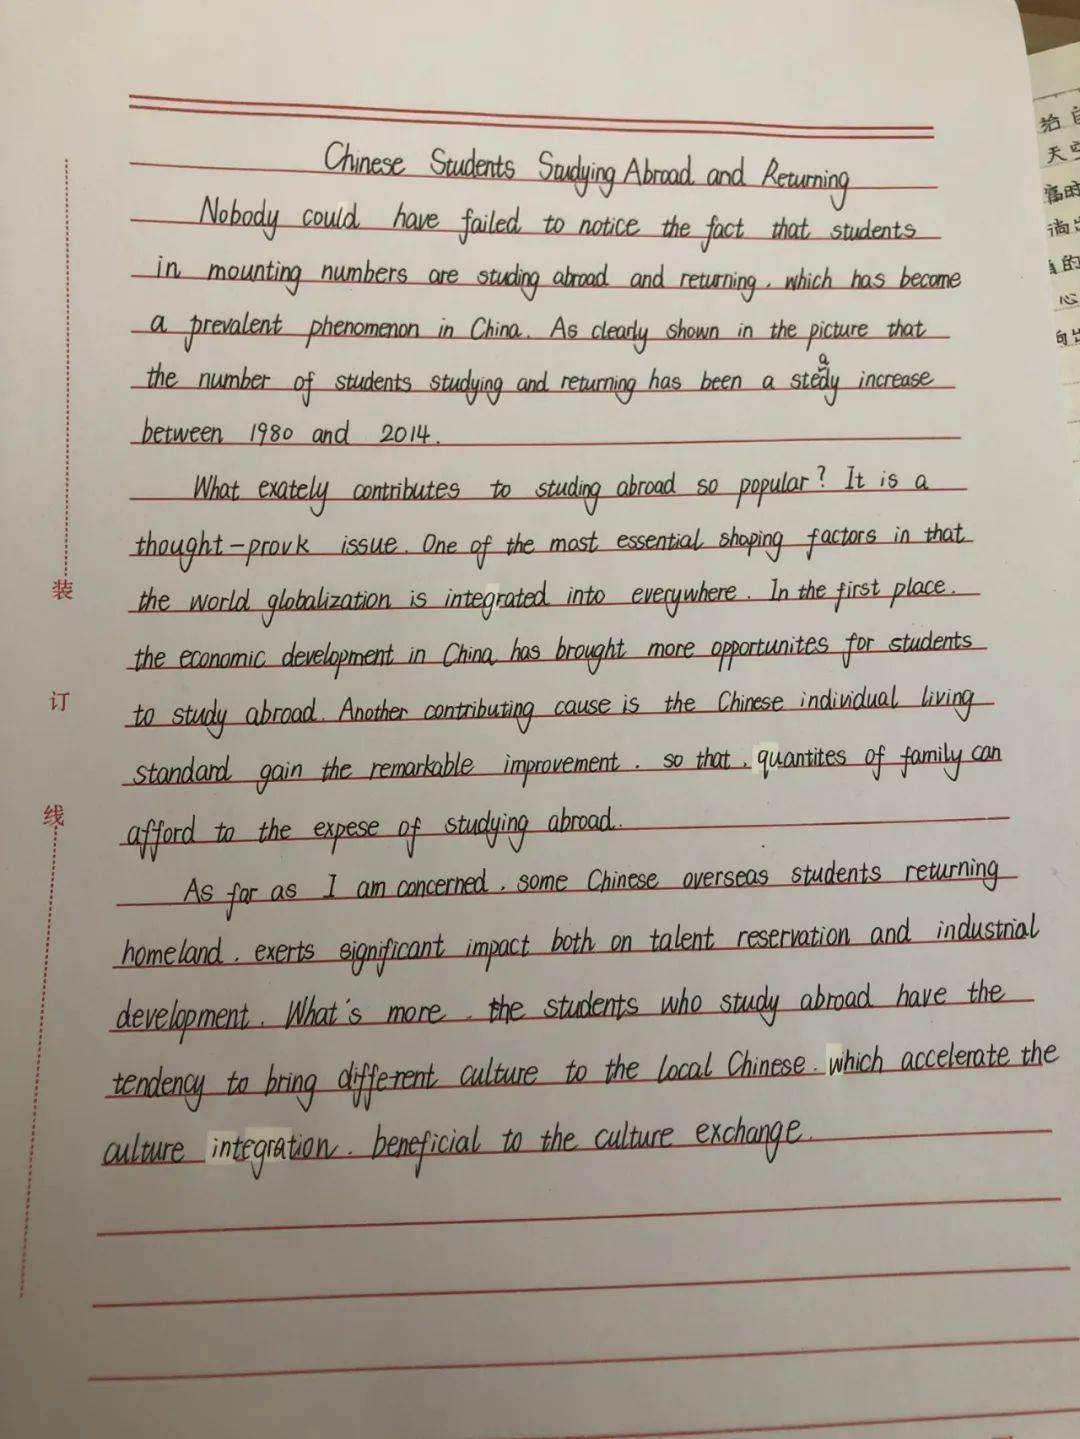 Chinese Students Studying Abroad and Returning
Nobody could have failed to notice the fact that students
in mounting numbers are studing abroad and returning, which has become
a prevalent phenomenon in China. As clearly shown in the picture that
the number of students studying and returning has been a steady increase
between 1980 and 2014.
What exately contributes to studing abroad so popular? It is a
thought-provk issue. One of the most essential shaping factors in that
the world globalization is integrated into everywhere. In the first place,
the economic development in China has brought more opportunites for students
to study abroad. Another contributing cause is the Chinese individual living
standard gain the remarkable improvement, so that, quantites of family can
afford to the expese of studying abroad.
As far as I am concerned, some Chinese overseas students returning
homeland, exerts significant impact both on talent reservation and industrial
development. What's more, the students who study abroad have the
tendency to bring different culture to the local Chinese, which accelerate the
culture integration, beneficial to the culture exchange.
装
订
线
给自
天
富时
淌
的
心
向